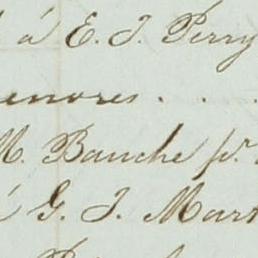 á E. J. Perry
enores . . .
M. Bauche pr.
á G. J. Mart